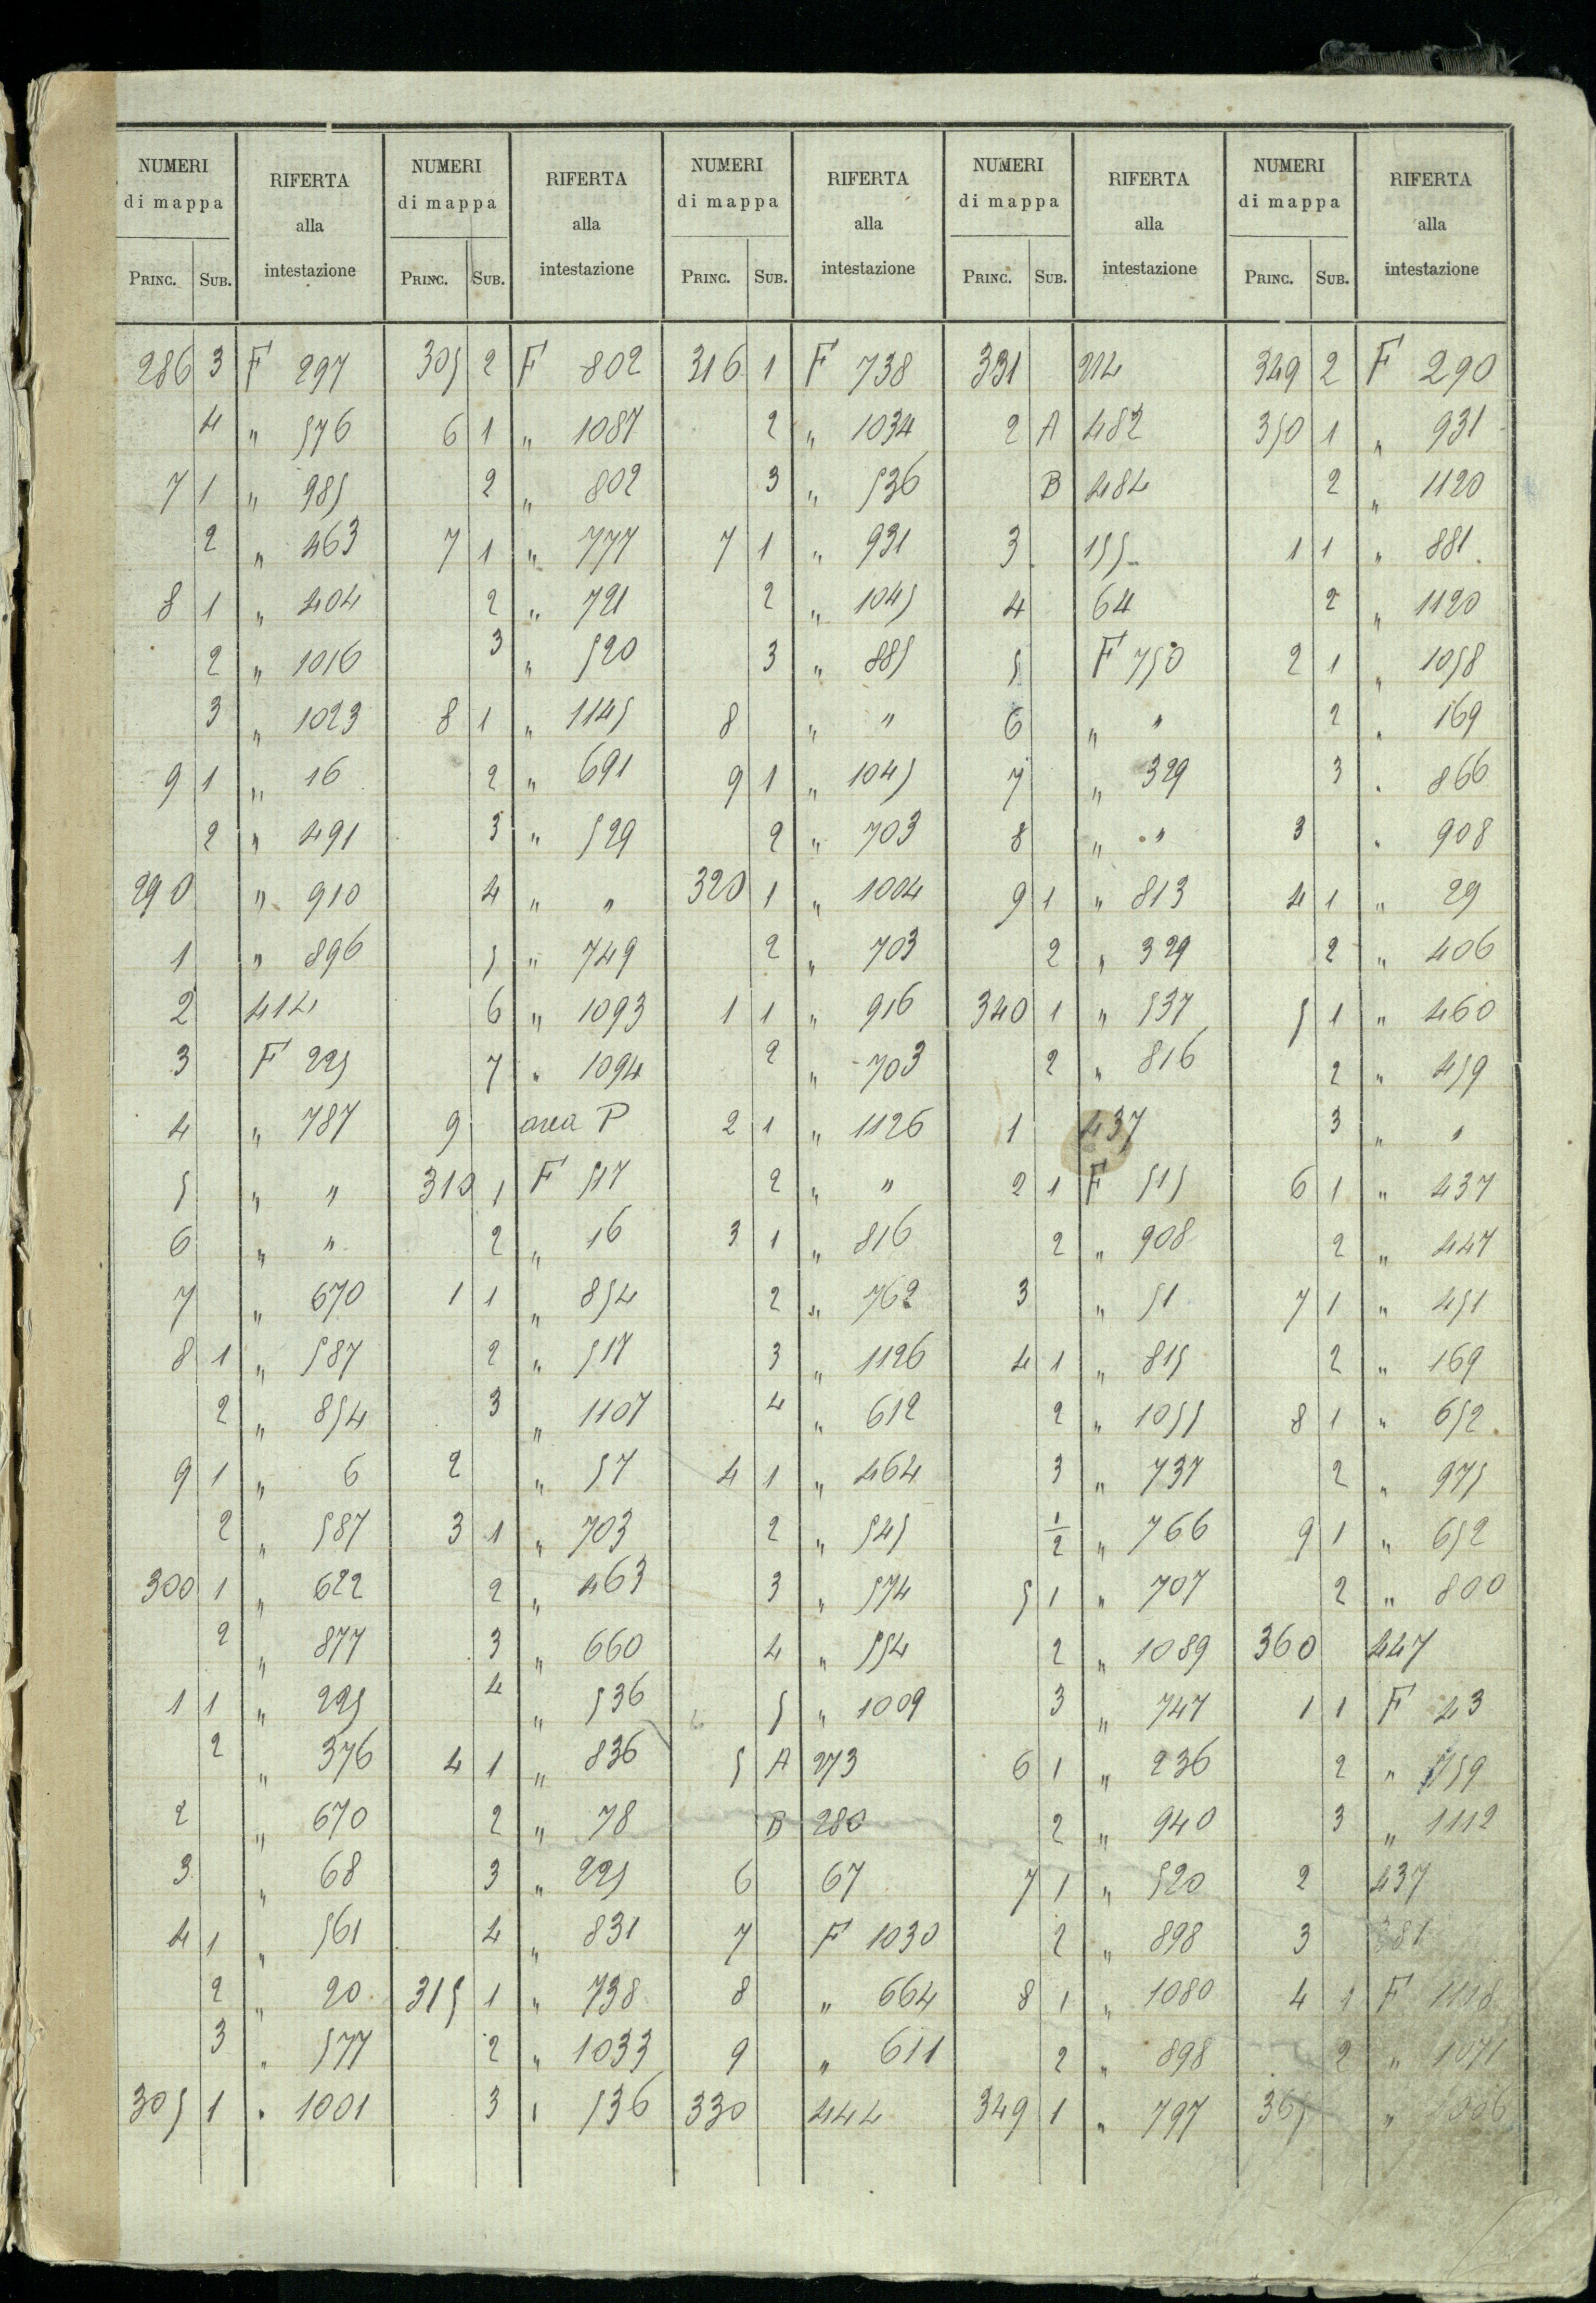 NUMERI di mappa RIFERTA alla intestazione NUMERI di mappa RIFERTA alla intestazione NUMERI di mappa RIFERTA alla intestazione NUMERI di mappa RIFERTA alla intestazione NUMERI di mappa RIFERTA alla intestazione
PRINC. SUB. PRINC. SUB. PRINC. SUB. PRINC. SUB. PRINC. SUB.
286 3 F 297 305 2 F 802 316 1 F 738 331 214 349 2 F 290
4 " 576 6 1 " 1087 2 " 1034 2 A 482 350 1 " 931
7 1 " 985 2 " 802 3 " 536 B 484 2 " 1120
2 " 463 7 1 " 777 7 1 " 931 3 155 1 1 " 881
8 1 " 404 2 " 721 2 " 1045 4 64 2 " 1120
2 " 1016 3 " 520 3 " 885 5 F 750 2 1 " 1058
3 " 1023 8 1 " 1145 8 " " 6 " " 2 " 169
9 1 " 16 2 " 691 9 1 " 1045 7 " 329 3 " 866
2 " 491 3 " 529 2 " 703 8 " " 3 " 908
290 " 910 4 " " 320 1 " 1004 9 1 " 813 4 1 " 29
1 " 896 5 " 749 2 " 703 2 " 329 2 " 406
2 414 6 " 1093 1 1 " 916 340 1 " 537 5 1 " 460
3 F 225 7 " 1094 2 " 703 2 " 816 2 " 459
4 " 787 9 area P 2 1 " 1126 1 437 3 " "
5 " " 310 1 F 517 2 " " 2 1 F 515 6 1 " 437
6 " " 2 " 16 3 1 " 816 2 " 908 2 " 447
7 " 670 1 1 " 854 2 " 762 3 " 51 7 1 " 451
8 1 " 587 2 " 517 3 " 1126 4 1 " 815 2 " 169
2 " 854 3 " 1107 4 " 612 2 " 1055 8 1 " 652
9 1 " 6 2 " 57 4 1 " 464 3 " 737 2 " 975
2 " 587 3 1 " 703 2 " 545 1/2 " 766 9 1 " 652
300 1 " 622 2 " 463 3 " 574 5 1 " 707 2 " 800
2 " 877 3 " 660 4 " 554 2 " 1089 360 447
1 1 " 225 4 " 536 5 " 1009 3 " 747 1 1 F 43
2 " 376 4 1 " 836 5 A 273 6 1 " 236 2 "
2 " 670 2 " 78 B 280 2 " 940 3 " 1112
3 " 68 3 " 225 6 67 7 1 " 520 2 437
4 1 " 561 4 " 831 7 F 1030 2 " 898 3 381
2 " 20 315 1 " 738 8 " 664 8 1 " 1080 4 1 F 1118
3 " 577 2 " 1033 9 " 611 2 " 898 2 " 1071
305 1 " 1001 3 " 536 330 444 349 1 " 797 365 "